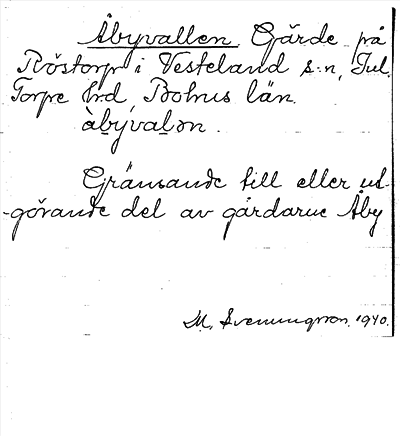 Åbyvallen Gärde på
Röstorp i Vesteland s:n, Tul
Torpe hrd, Bohus län.
àbyvalən.
Gränsande till eller ut-
-görande del av gårdarne Åby
M. Svenungsson. 1940.